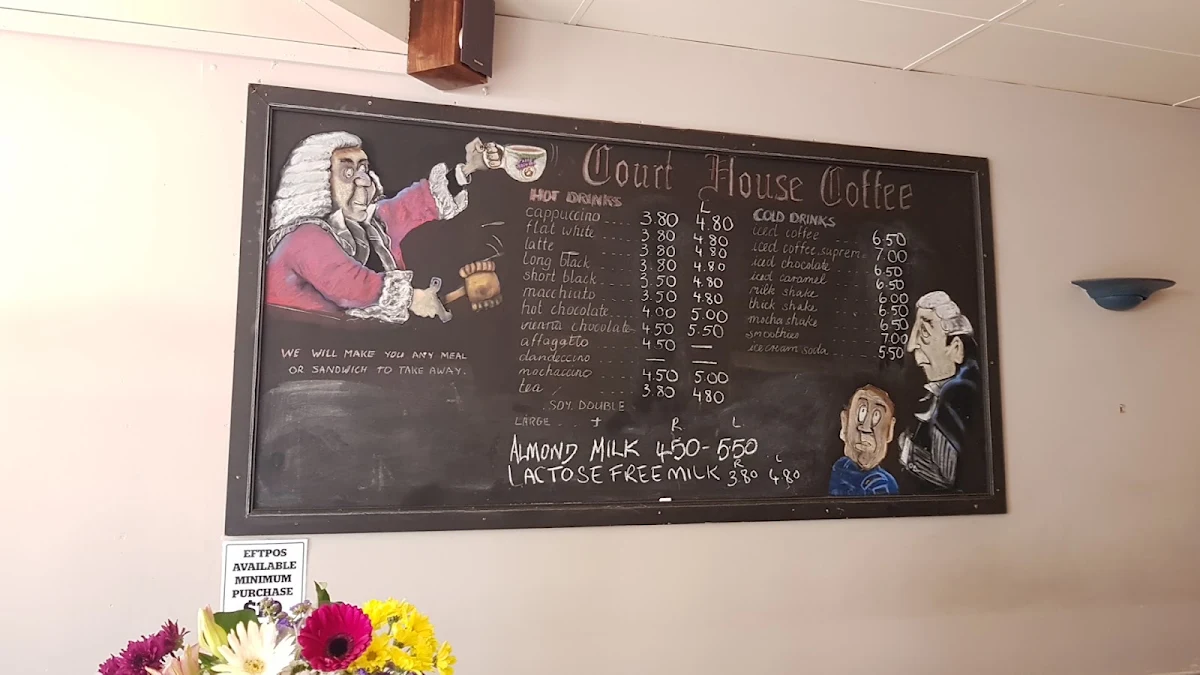 Court House Coffee
HOT DRINKS
L
cappuccino 3.80 4.80
flat white 3.80 4.80
latte 3.80 4.80
long black 3.80 4.80
short black 3.50 4.80
macchiato 3.50 4.80
hot chocolate 4.00 5.00
vienna chocolate 4.50 5.50
affagatto 4.50 —
dandeccino — —
mochaccino 4.50 5.00
tea 3.80 4.80
SOY, DOUBLE
LARGE
R L
ALMOND MILK 4.50 - 5.50
R L
LACTOSE FREE MILK 3.80 4.80
COLD DRINKS
iced coffee 6.50
iced coffee suprem 7.00
iced chocolate 6.50
iced caramel 6.50
milk shake 6.00
thick shake 6.50
mocha shake 6.50
smoothies 7.00
ice cream soda 5.50
WE WILL MAKE YOU ANY MEAL
OR SANDWICH TO TAKE AWAY.
EFTPOS
AVAILABLE
MINIMUM
PURCHASE